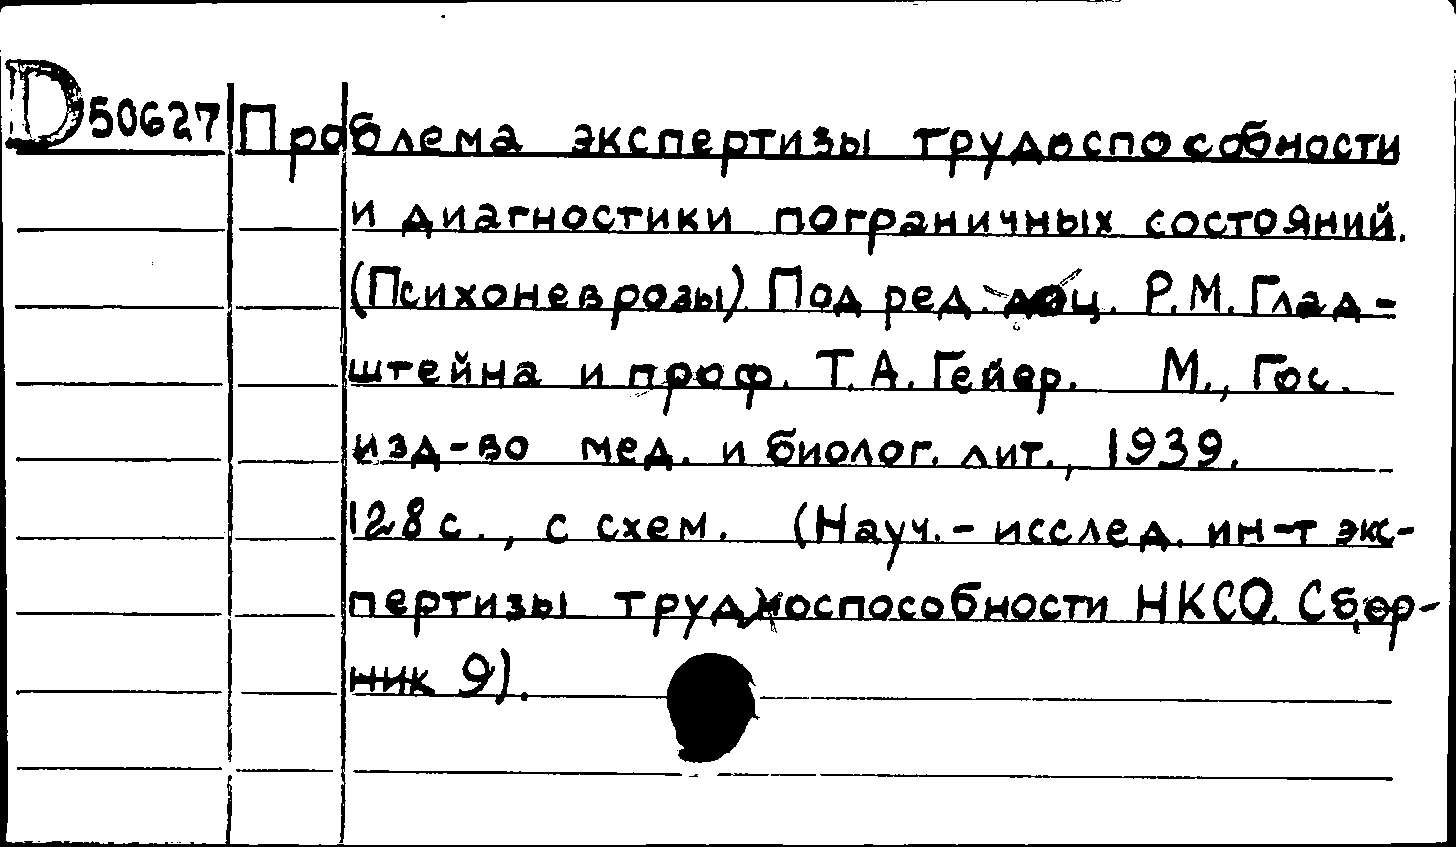 D50627 Проблема экспертизы трудоспособности
и диагностики пограничных состояний.
(Психоневрозы) Под ред. доц. Р.М. Глад-
штейна и проф. Т.А. Гейер. М., Гос.
изд-во мед. и биолог. лит., 1939.
128 с., с схем. (Науч.-исслед. ин-т экс-
пертизы трудоспособности НКСО. Сбор-
ник 9).